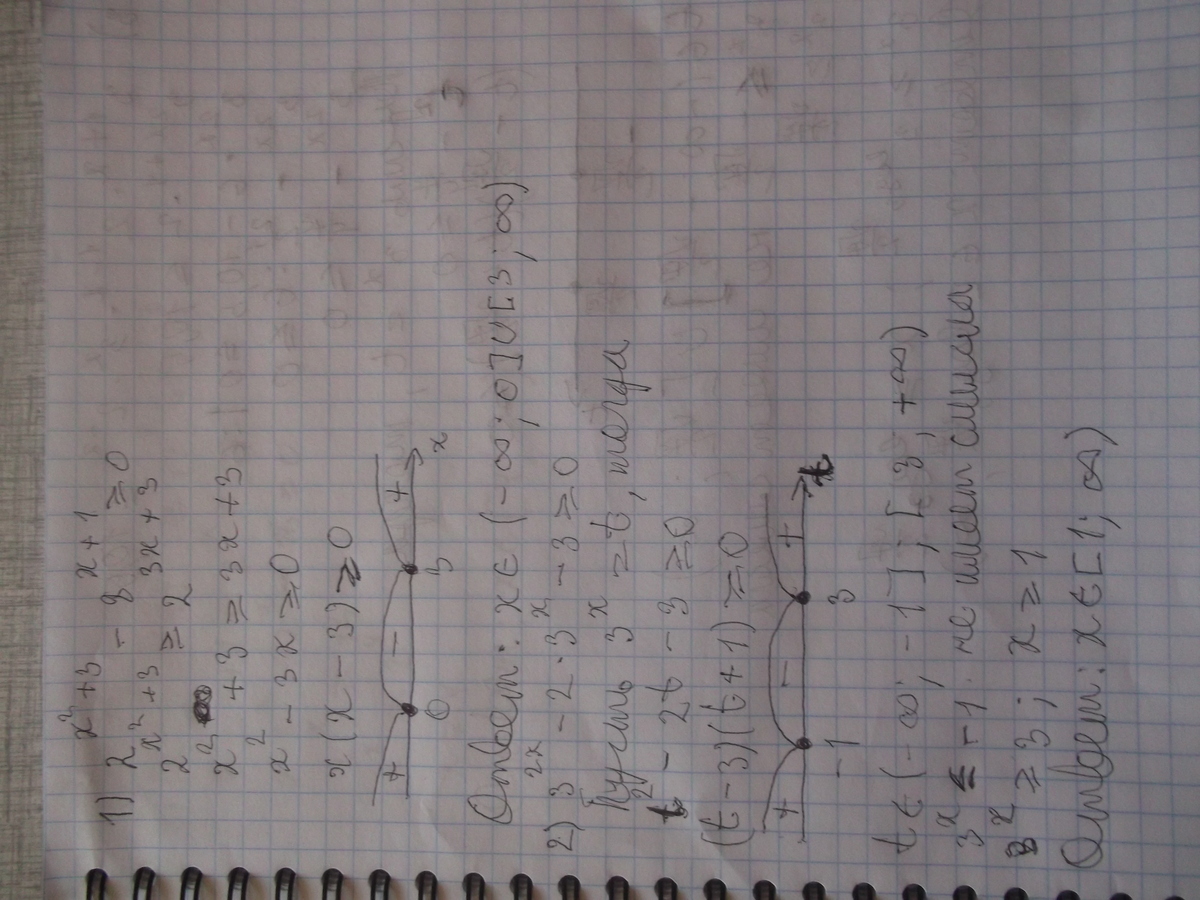 1) 2^{x²+3} - 8^{x+1} ≥ 0
2^{x²+3} ≥ 2^{3x+3}
x² + 3 ≥ 3x + 3
x² - 3x ≥ 0
x(x - 3) ≥ 0
+ - + x
0 3
Ответ: x ∈ (-∞; 0] U [3; ∞)
2) 3^{2x} - 2·3^x - 3 ≥ 0
Пусть 3^x = t, тогда
t² - 2t - 3 ≥ 0
(t - 3)(t + 1) ≥ 0
+ - + t
-1 3
t ∈ (-∞; -1] ; [3; +∞)
3^x ≤ -1. не имеет смысла
3^x ≥ 3; x ≥ 1
Ответ: x ∈ [1; ∞)